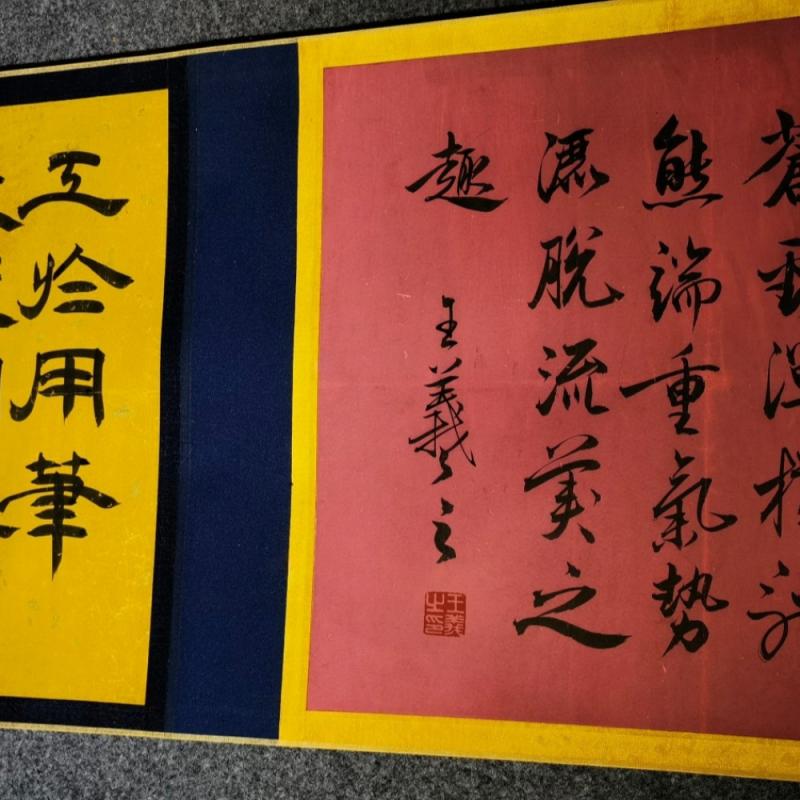 蒼
態端重氣勢
灑脫流美之
趣
王羲之
王羲之印
工於用筆